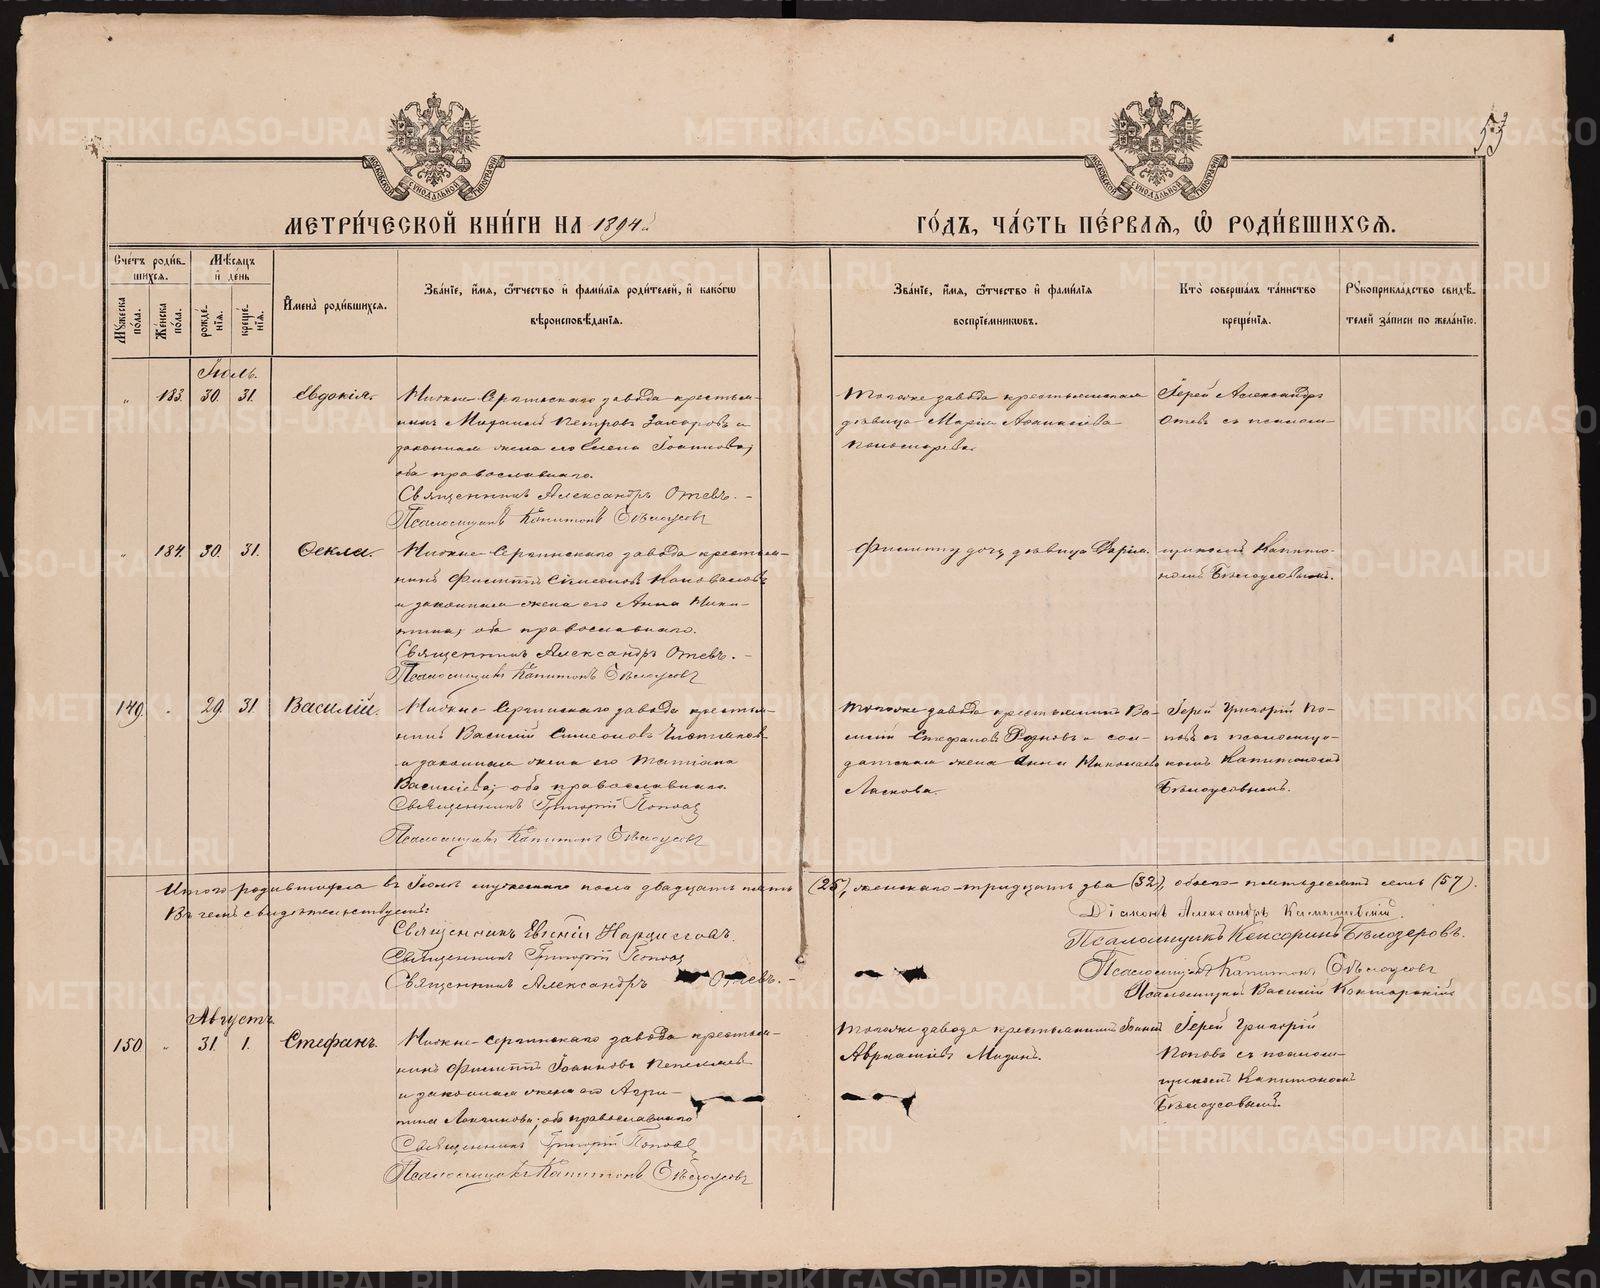 53
МЕТРИ́ЧЕСКОЙ КНИ́ГИ НА 1894й
ГО́ДЪ, ЧА́СТЬ ПЕ́РВАЯ, Ѡ РОДИ́ВШИХСЯ.
Счетъ родив-
шихся.
Мѣсяцъ
и день
Мꙋжеска пола.
Женска пола.
рожде-
нія.
креще-
нія.
Имена родившихся.
Званіе, имя, ѻтчество и фамилія родителей, и какогѡ
вѣроисповѣданія.
Званіе, имя, ѻтчество и фамилія
воспріемниковъ.
Кто совершалъ таинство
крещенія.
Рꙋкоприкладство свидѣ-
телей записи по желанію.
Іюль.
" 183. 30. 31. Евдокія.
Нижне-Сергинскаго завода крестья-
нинъ Петровъ Захаровъ и
законная жена его Елена Іоаннова;
оба православнаго.
Священникъ Александръ Отевъ.-
Псаломщикъ Капитонъ Бѣлоусовъ
Тогоже завода крестьянская
дѣвица Марія Афанасіева
Пономарева.
Іерей Александръ
Отевъ съ псалом-
" 184. 30. 31. Ѳекла.
Нижне-Сергинскаго завода крестья-
нинъ Филиппъ Симеоновъ Коноваловъ
и законная жена его Анна Ники-
тина; оба православнаго.
Священникъ Александръ Отевъ.-
Псаломщикъ Капитонъ Бѣлоусовъ
Филиппу дочь дѣвица Марія.
щикомъ Капито-
номъ Бѣлоусовымъ.
149. " 29. 31. Василій.
Нижне-Сергинскаго завода крестья-
нинъ Василій Симеоновъ
и законная жена его Татіана
Василіева; оба православнаго.
Священникъ Григорій Поповъ
Псаломщикъ Капитонъ Бѣлоусовъ
Тогоже завода крестьянинъ Ва-
силій Стефановъ и сол-
датская жена Анна Николаева
Ласкова.
Іерей Григорій По-
повъ съ псаломщи-
комъ Капитономъ
Бѣлоусовымъ.
Итого родившихся въ Іюлѣ мужескаго пола двадцать пять (25), женскаго-тридцать два (32), обоего пятьдесятъ семь (57).
Въ чемъ свидѣтельствуемъ:
Священникъ Евгеній Нарциссовъ.
Священникъ Григорій Поповъ
Священникъ Александръ Отевъ.-
Діаконъ Александръ
Псаломщикъ Кенсоринъ Бѣлозеровъ.
Псаломщикъ Капитонъ Бѣлоусовъ
Псаломщикъ Василій
Августъ.
150 " 31. 1. Стефанъ.
Нижне-Сергинскаго завода крестья-
нинъ Филиппъ Іоанновъ
и законная жена его Агри-
пина Логгинова; оба православнаго
Священникъ Григорій Поповъ
Псаломщикъ Капитонъ Бѣлоусовъ
Тогоже завода крестьянинъ Іоаннъ
Іерей Григорій
Поповъ съ псалом-
щикомъ Капитономъ
Бѣлоусовымъ.
METRIKI.GASO-URAL.RU